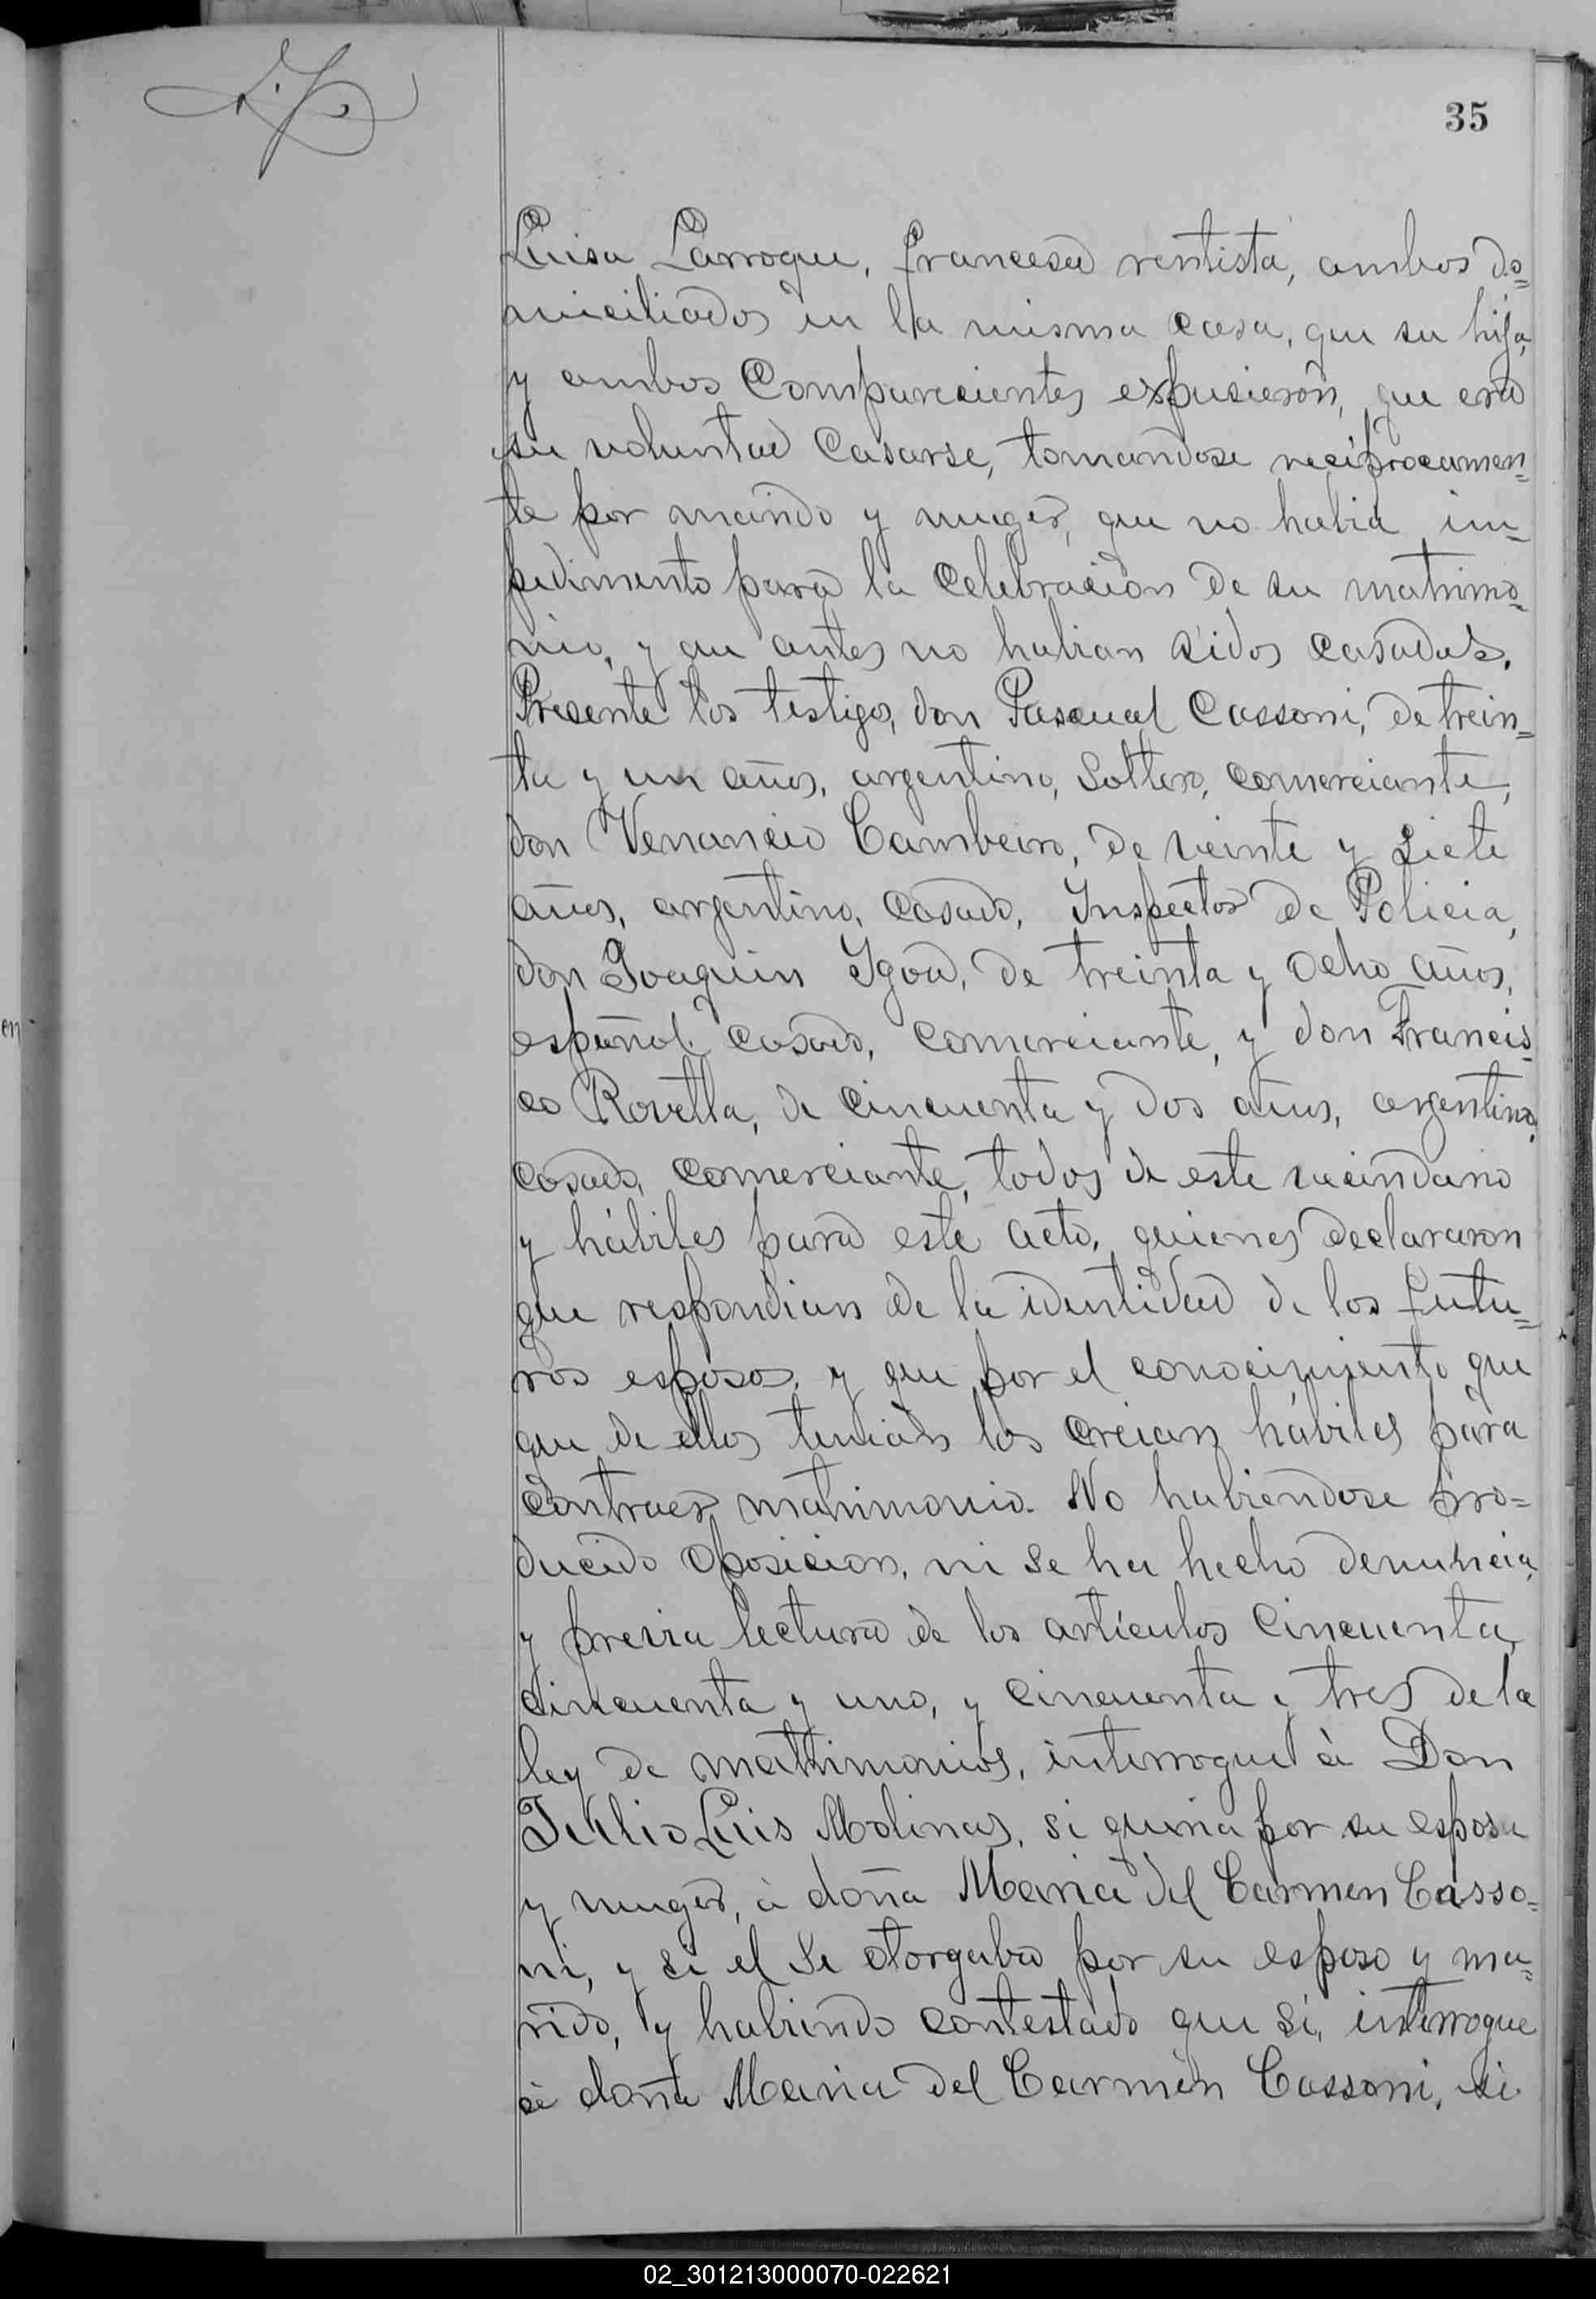 35
Luisa Larroque, francesa rentista, ambos do=
miciliados en la misma casa, que su hija,
y ambos Comparecientes expusieron, que era
su voluntad Casarse, tomandose reciprocamen=
te por marido y muger, que no habia im=
pedimento para la Celebracion de su matrimo=
nio, y que antes no habian sidos casados.
Presente los testigos, don Pascual Cassoni, de trein=
ta y un años, argentino, Soltero, comerciante,
don Venancio Cambeiro, de veinte y siete
años, argentino, casado, Inspector de Policia,
don Joaquin Igoa, de treinta y ocho años,
español, casado, comerciante, y don Francis=
co Rovella, de cincuenta y dos años, argentino,
casado, comerciante, todos de este vecindario
y hábiles para este acto, quienes declararon
que respondian de la identidad de los futu=
ros esposos, y que por el conocimiento que
que de ellos tenian los creian hábiles para
contraer matrimonio. No habiendose pro=
ducido oposicion, ni se ha hecho denuncia,
y previa lectura de los artículos cincuenta,
cincuenta y uno, y cincuenta y tres de la
ley de matrimonios, interrogué à Don
Julio Luis Molinas, si queria por su esposa
y muger, à doña Maria del Carmen Casso=
ni, y si el se otorgaba por su esposo y ma=
rido, y habiendo contestado que si, interrogue
à doña Maria del Carmen Cassoni, si
en
02_301213000070-022621